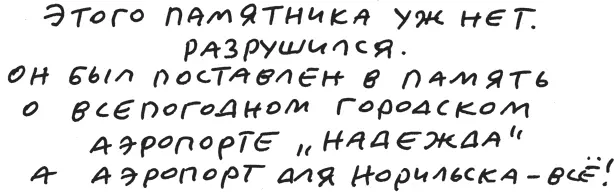 ЭТОГО ПАМЯТНИКА УЖ НЕТ.
РАЗРУШИЛСЯ.
ОН БЫЛ ПОСТАВЛЕН В ПАМЯТЬ
О ВСЕПОГОДНОМ ГОРОДСКОМ
АЭРОПОРТЕ „НАДЕЖДА"
А АЭРОПОРТ ДЛЯ НОРИЛЬСКА – ВСЁ!